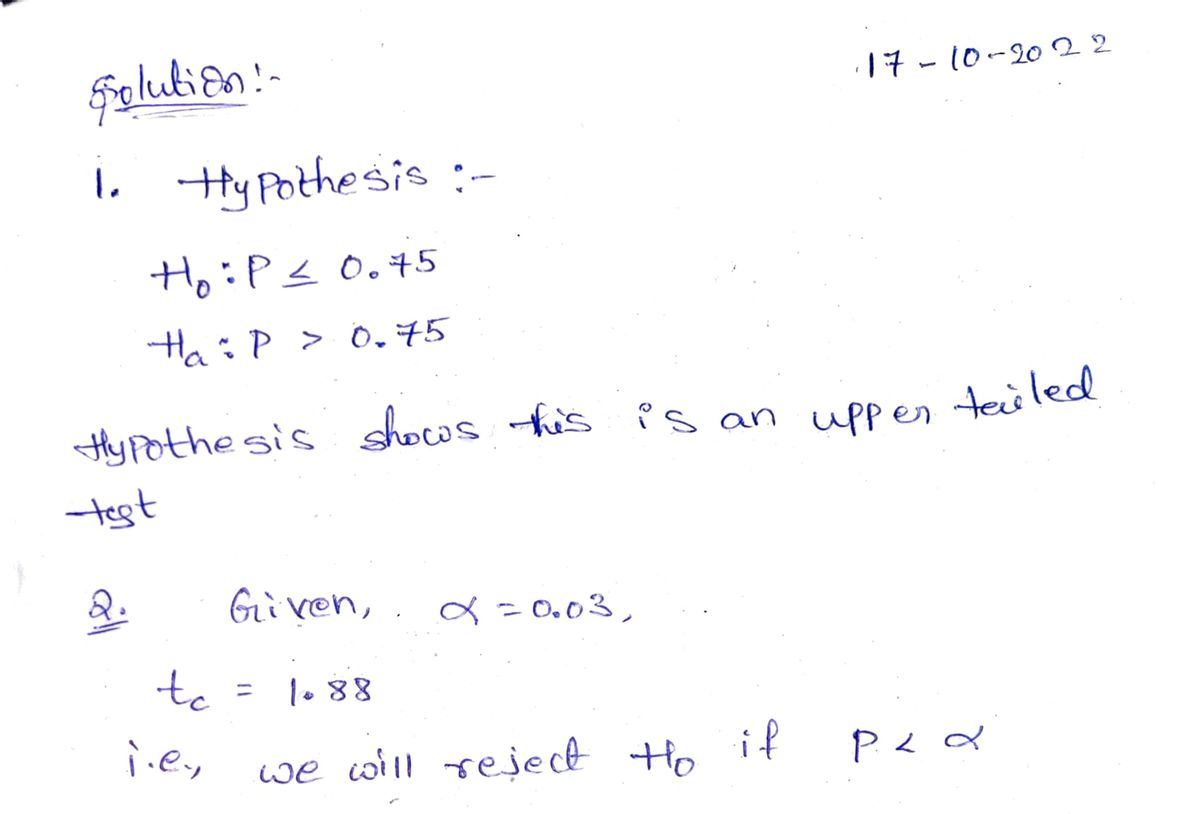 17-10-2022
Solution:-
1. Hypothesis :-
H₀ : P ≤ 0.75
Ha : P > 0.75
Hypothesis shows this is an upper tailed
test
2. Given, α = 0.03,
tc = 1.88
i.e., we will reject H₀ if P < α